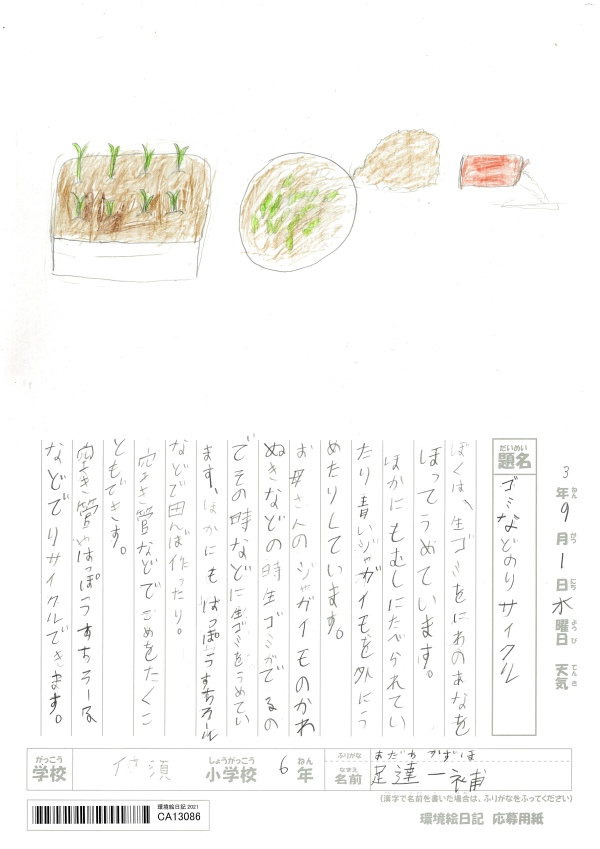 3年9月1日水曜日 天気
ねん がつ にち ようび てんき
だいめい
題名
ゴミなどのリサイクル
ぼくは、生ゴミをにわのあなを
ほってうめています。
ほかにもむしにたべられてい
たり青いジャガイモを外にう
めたりしています。
お母さんのジャガイモのかわ
ぬきなどの時生ゴミがでるの
でその時などに生ゴミをうめてい
ます、ほかにもはっぽうすちろール
などで田んぼ作ったり。
空き管などでごめをたくこ
ともできす。
空き管やはっぽうすちろール
などでリサイクルできます。
がっこう
学校
しょうがっこう
小学校
6年
ねん
ふりがな
あだち かずほ
なまえ
名前
足達 一補
(漢字で名前を書いた場合は、ふりがなをふってください)
環境絵日記 2021
CA13086
環境絵日記 応募用紙